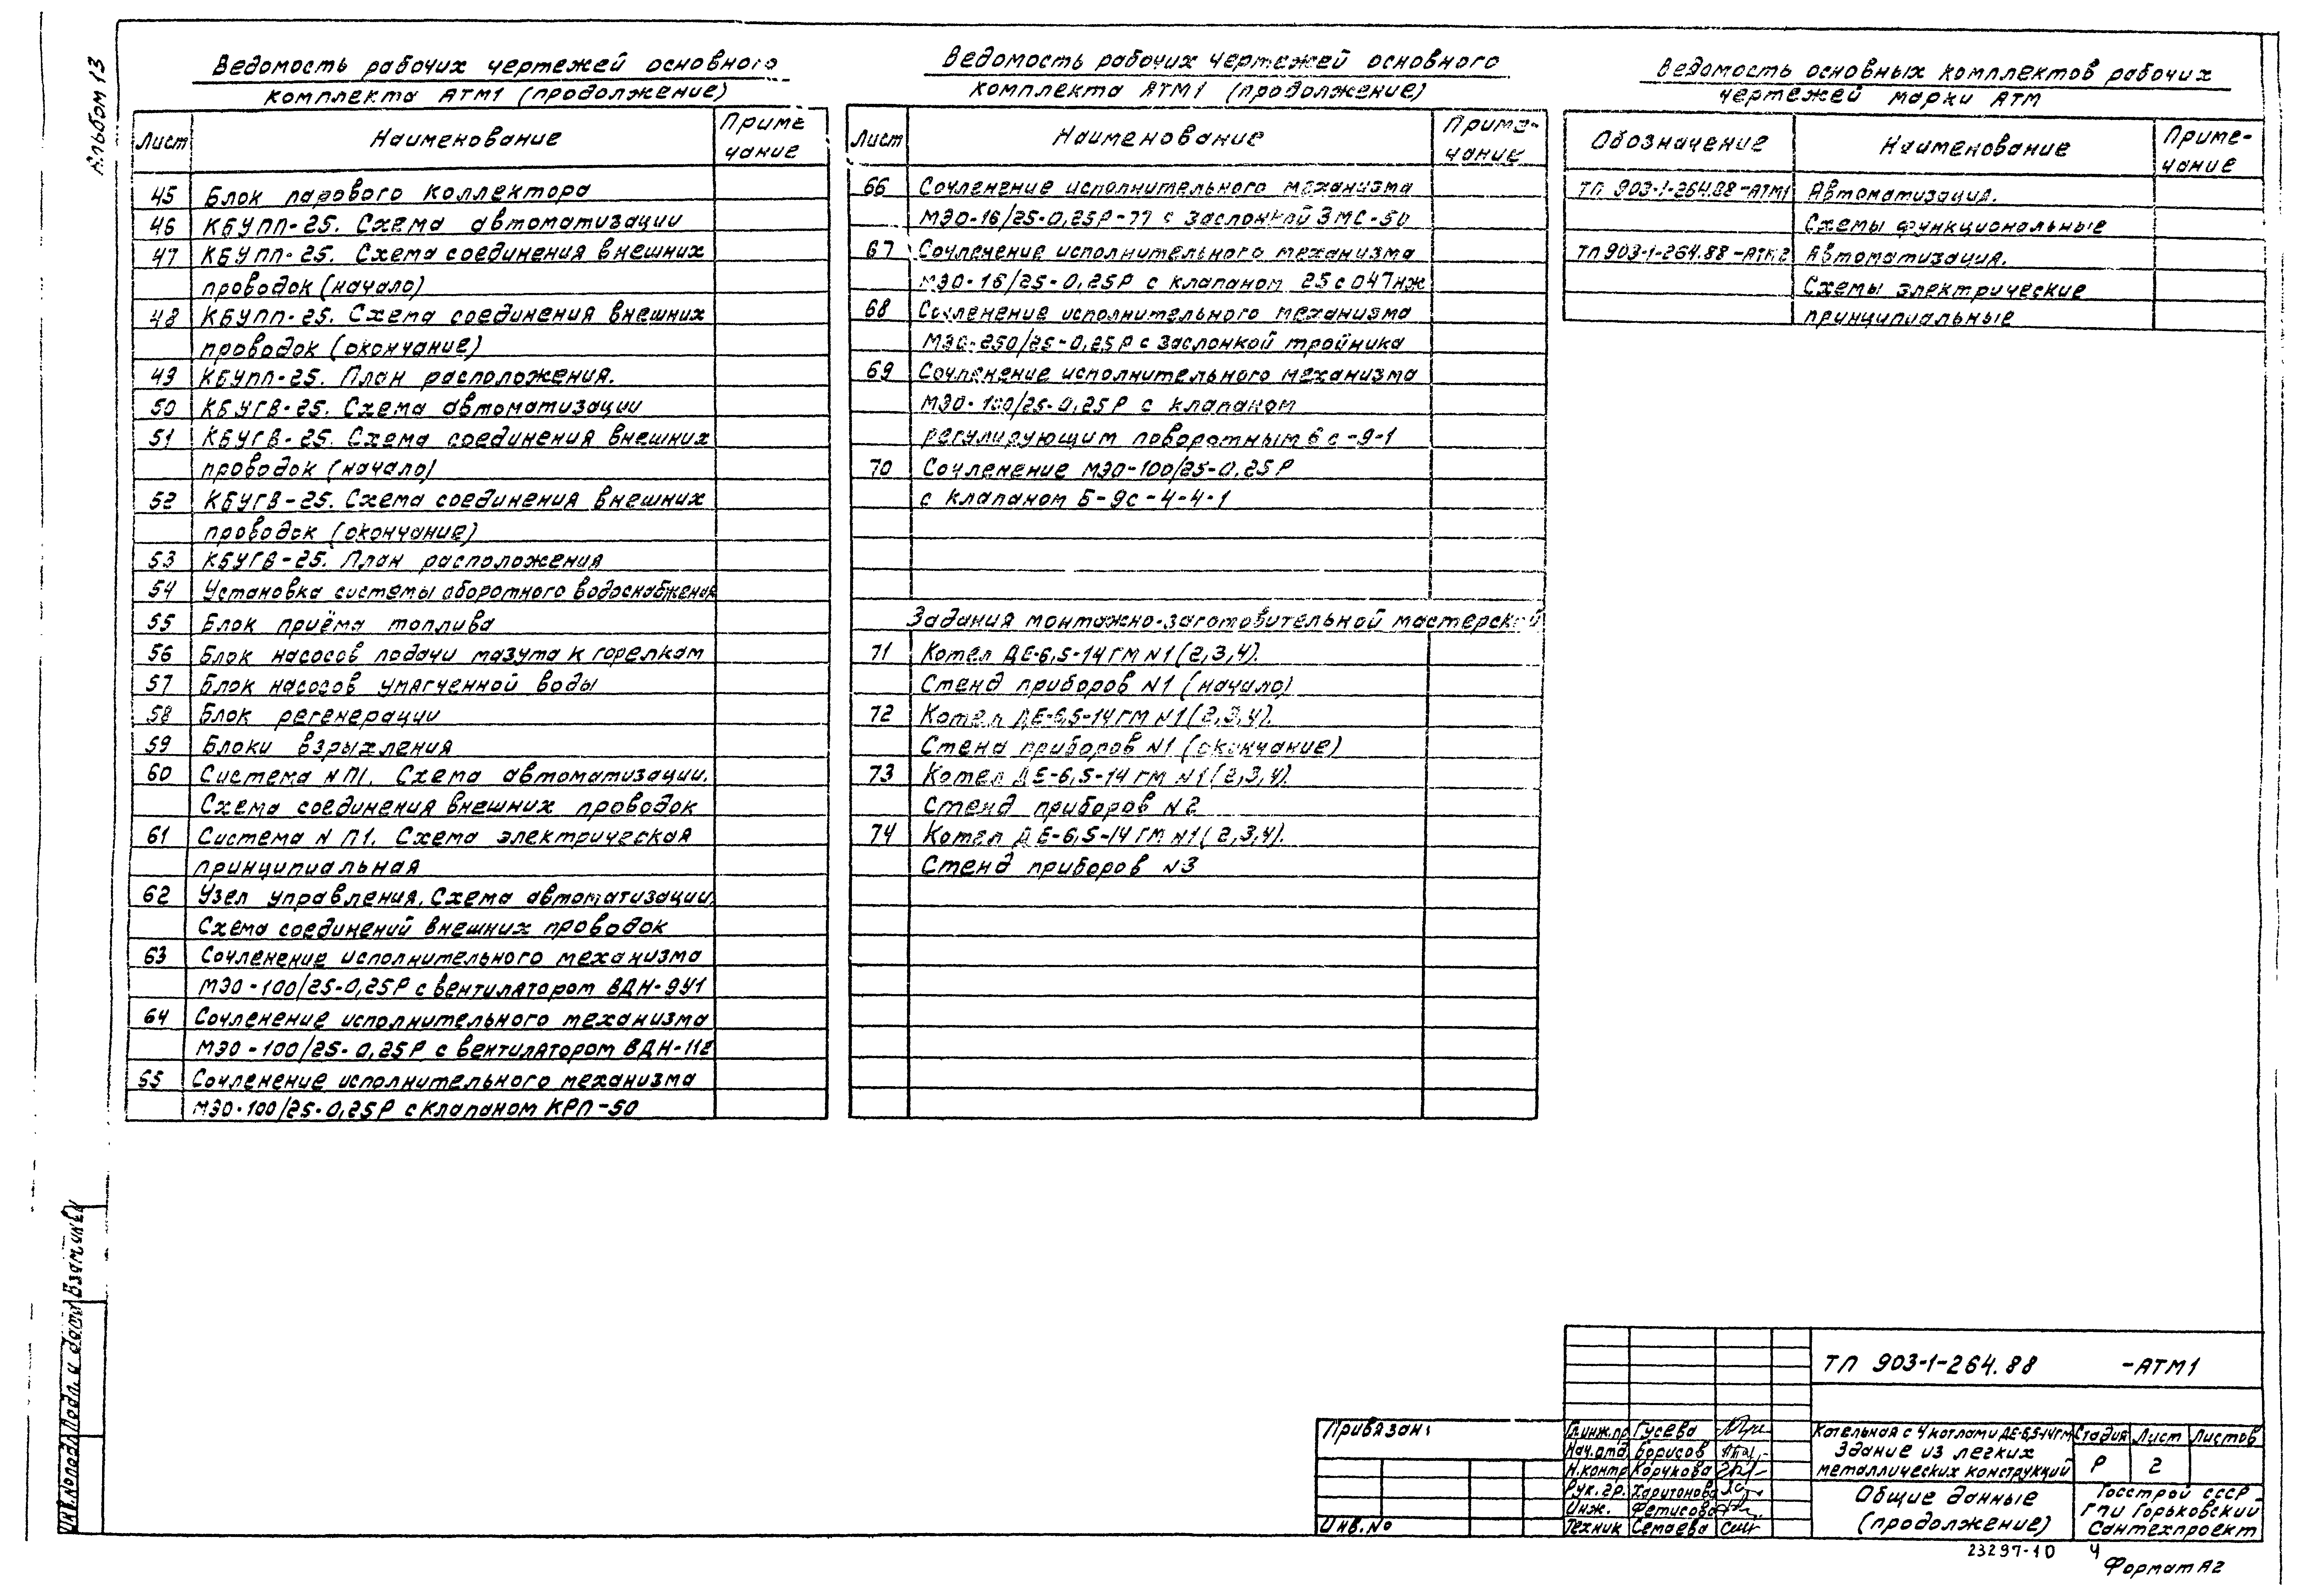 Альбом 13
Ведомость рабочих чертежей основного
комплекта АТМ1 (продолжение)
Лист Наименование Приме
чание
45 Блок парового коллектора
46 КБУПП-25. Схема автоматизации
47 КБУПП-25. Схема соединения внешних
проводок (начало)
48 КБУПП-25. Схема соединения внешних
проводок (окончание)
49 КБУПП-25. План расположения.
50 КБУГВ-25. Схема автоматизации
51 КБУГВ-25. Схема соединения внешних
проводок (начало)
52 КБУГВ-25. Схема соединения внешних
проводок (окончание)
53 КБУГВ-25. План расположения
54 Установка системы оборотного водоснабжения
55 Блок приёма топлива
56 Блок насосов подачи мазута к горелкам
57 Блок насосов умягченной воды
58 Блок регенерации
59 Блоки взрыхления
60 Система N П1. Схема автоматизации.
Схема соединения внешних проводок
61 Система N П1. Схема электрическая
принципиальная
62 Узел управления. Схема автоматизации.
Схема соединений внешних проводок
63 Сочленение исполнительного механизма
МЭО-100/25-0,25Р с вентилятором ВДН-9У1
64 Сочленение исполнительного механизма
МЭО-100/25-0,25Р с вентилятором ВДН-112
65 Сочленение исполнительного механизма
МЭО-100/25-0,25Р с клапаном КРП-50
Ведомость рабочих чертежей основного
комплекта АТМ1 (продолжение)
Лист Наименование Приме-
чание
66 Сочленение исполнительного механизма
МЭО-16/25-0,25Р-77 с заслонкой ЗМС-50
67 Сочленение исполнительного механизма
МЭО-16/25-0,25Р с клапаном 25с047нж
68 Сочленение исполнительного механизма
МЭО-250/25-0,25Р с заслонкой тройника
69 Сочленение исполнительного механизма
МЭО-100/25-0,25Р с клапаном
регулирующим поворотным 6с-9-1
70 Сочленение МЭО-100/25-0,25Р
с клапаном Б-9с-4-4-1
Задания монтажно-заготовительной мастерской
71 Котел ДЕ-6,5-14ГМ N1 (2,3,4).
Стенд приборов N1 (начало)
72 Котел ДЕ-6,5-14ГМ N1 (2,3,4).
Стенд приборов N1 (окончание)
73 Котел ДЕ-6,5-14ГМ N1 (2,3,4).
Стенд приборов N2
74 Котел ДЕ-6,5-14ГМ N1 (2,3,4).
Стенд приборов N3
Ведомость основных комплектов рабочих
чертежей марки АТМ
Обозначение Наименование Приме-
чание
ТП 903-1-264.88-АТМ1 Автоматизация.
Схемы функциональные
ТП 903-1-264.88-АТМ2 Автоматизация.
Схемы электрические
принципиальные
Инв.N подл. Подп. и дата Взам инв.N
Привязан:
Инв.No
Гл.инж.пр Гусева
Нач.отд. Борисов
Н.контр Корчкова
Рук.гр. Харитонова
Инж. Фетисова
Техник Семаева
ТП 903-1-264.88 -АТМ1
Котельная с 4 котлами ДЕ-6,5-14ГМ
Здание из легких
металлических конструкций
Стадия Лист Листов
Р 2
Общие данные
(продолжение)
Госстрой СССР
ГПИ Горьковский
Сантехпроект
23297-10 4
Формат А2